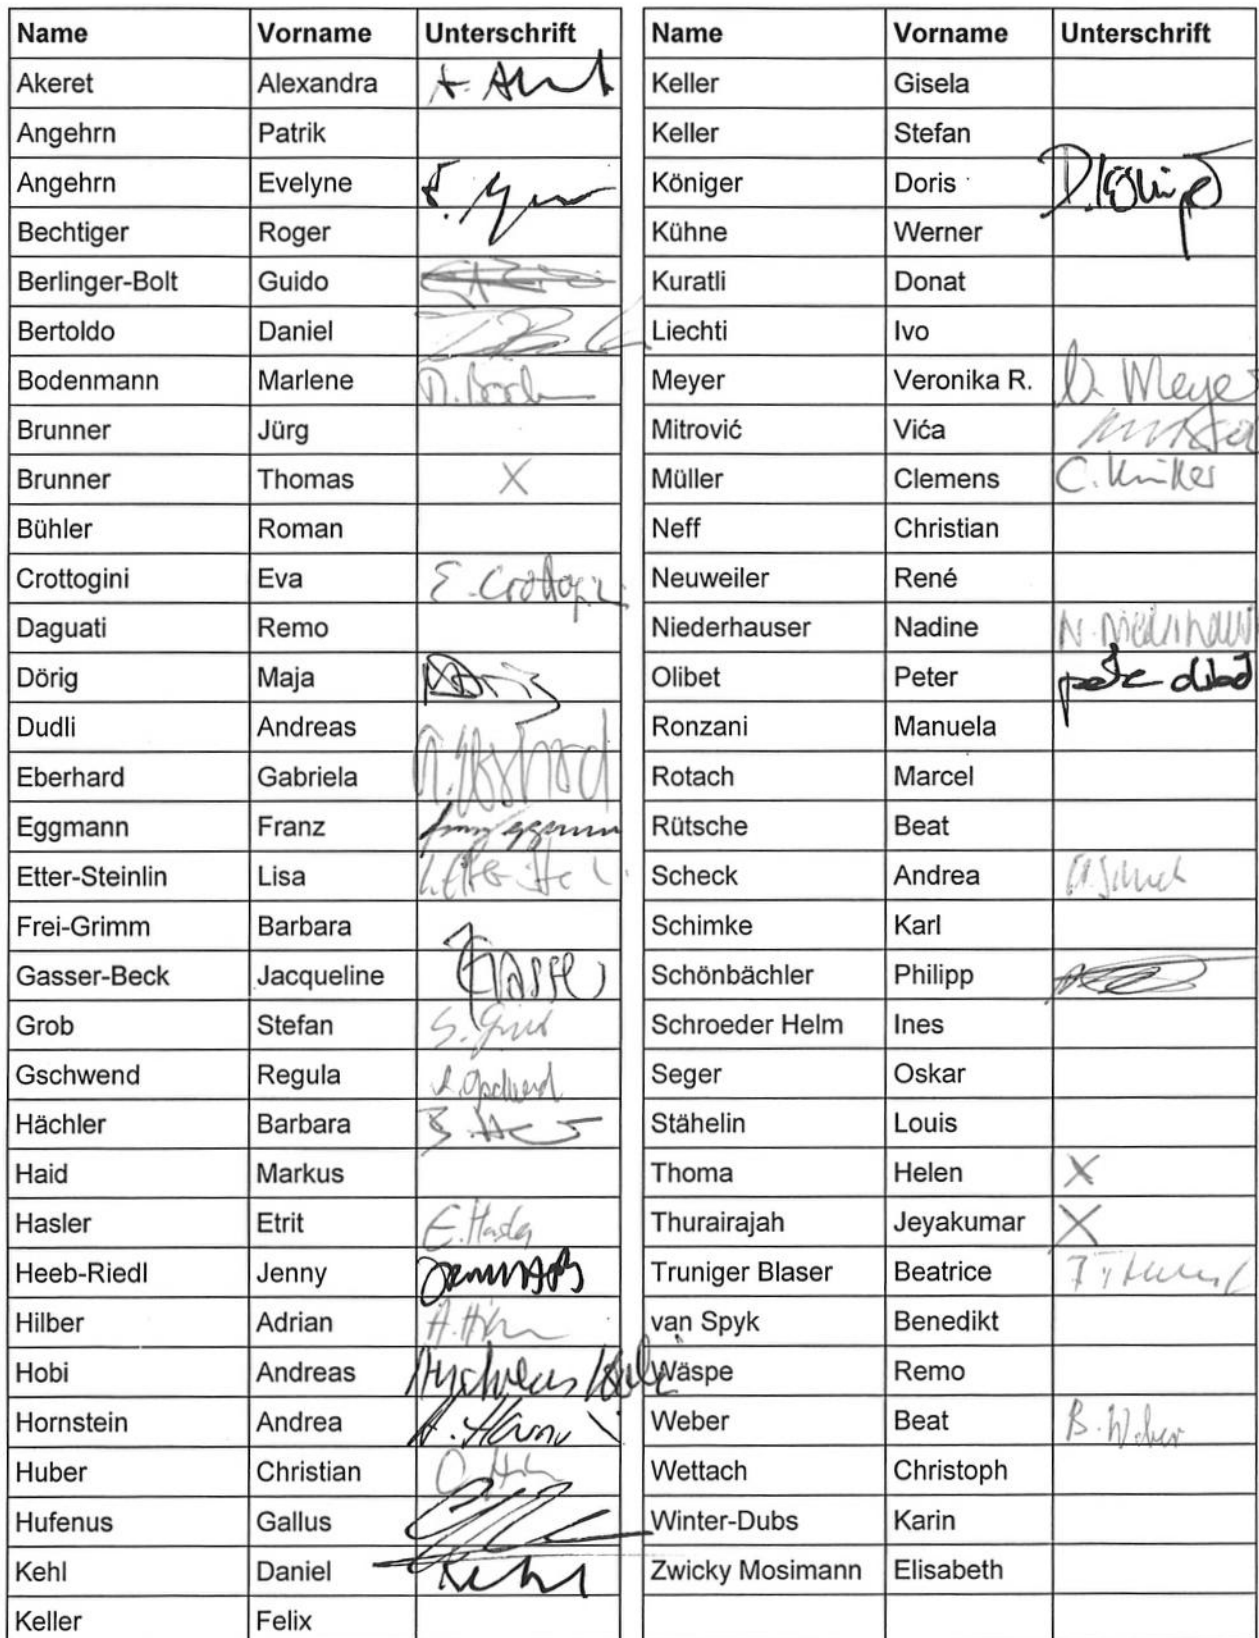 Name Vorname Unterschrift
Akeret Alexandra
Angehrn Patrik
Angehrn Evelyne
Bechtiger Roger
Berlinger-Bolt Guido
Bertoldo Daniel
Bodenmann Marlene
Brunner Jürg
Brunner Thomas X
Bühler Roman
Crottogini Eva E. Crottogini
Daguati Remo
Dörig Maja
Dudli Andreas
Eberhard Gabriela
Eggmann Franz
Etter-Steinlin Lisa
Frei-Grimm Barbara
Gasser-Beck Jacqueline
Grob Stefan
Gschwend Regula
Hächler Barbara
Haid Markus
Hasler Etrit E. Hasler
Heeb-Riedl Jenny
Hilber Adrian
Hobi Andreas
Hornstein Andrea
Huber Christian
Hufenus Gallus
Kehl Daniel Kehl
Keller Felix
Name Vorname Unterschrift
Keller Gisela
Keller Stefan
Königer Doris D. Königer
Kühne Werner
Kuratli Donat
Liechti Ivo
Meyer Veronika R. V. Meyer
Mitrović Vića
Müller Clemens C. Müller
Neff Christian
Neuweiler René
Niederhauser Nadine N. Niederhauser
Olibet Peter peter olibet
Ronzani Manuela
Rotach Marcel
Rütsche Beat
Scheck Andrea
Schimke Karl
Schönbächler Philipp
Schroeder Helm Ines
Seger Oskar
Stähelin Louis
Thoma Helen X
Thurairajah Jeyakumar X
Truniger Blaser Beatrice
van Spyk Benedikt
Wäspe Remo
Weber Beat B. Weber
Wettach Christoph
Winter-Dubs Karin
Zwicky Mosimann Elisabeth